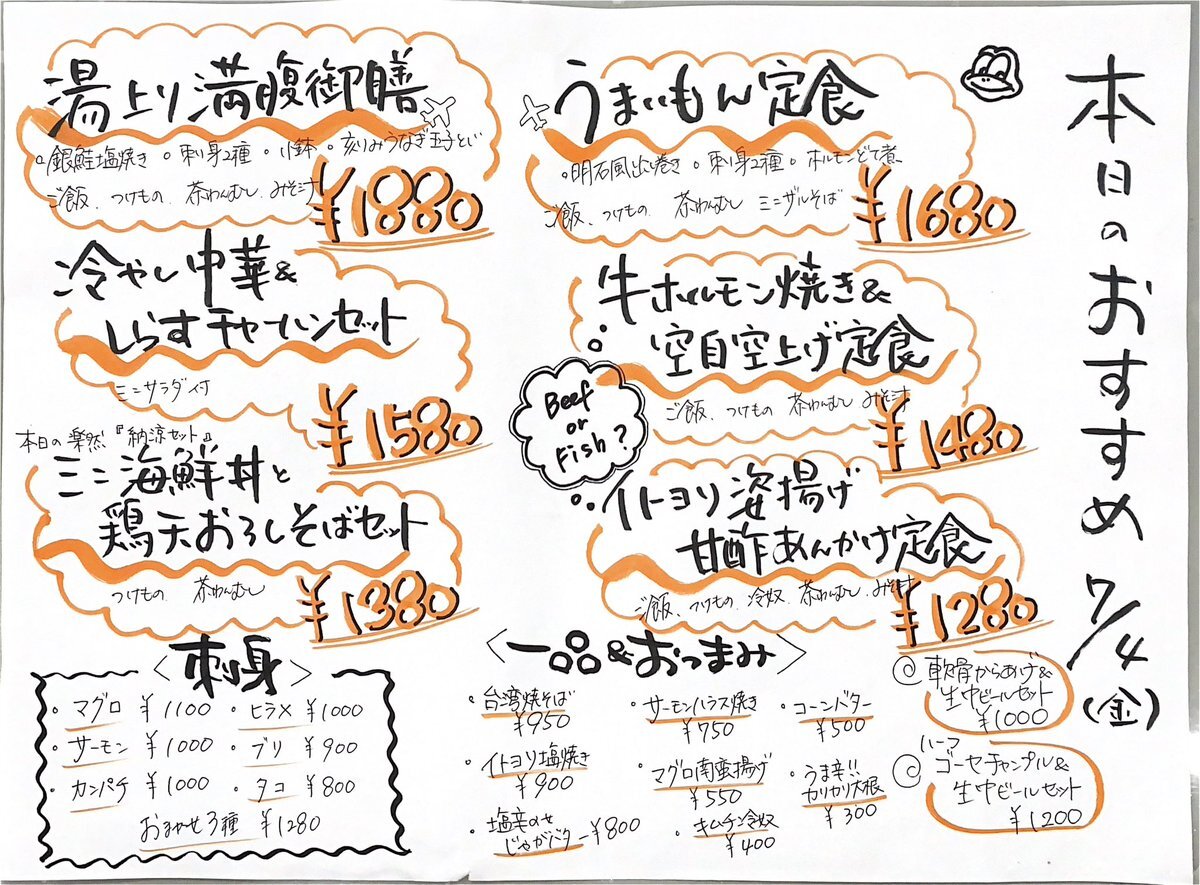 本日のおすすめ 7/4(金)
うまいもん定食
。明石風出し巻き 。刺身2種 。ホルモンどて煮
ご飯、つけもの 茶わんむし ミニザルそば
¥1680
牛ホルモン焼き&
空自空上げ定食
ご飯、つけもの 茶わんむし みそ汁
¥1480
Beef
or
Fish?
イトヨリ姿揚げ
甘酢あんかけ定食
ご飯、つけもの、冷奴、茶わんむし、みそ汁
¥1280
湯上り満腹御膳
。銀鮭塩焼き 。刺身2種 。小鉢 。刻みうなぎ玉子とじ
ご飯、つけもの 茶わんむし みそ汁
¥1880
冷やし中華&
しらすチャーハンセット
ミニサラダ付
¥1580
本日の楽然『納涼セット』
ミニ海鮮丼と
鶏天おろしそばセット
つけもの 茶わんむし
¥1380
<一品&おつまみ>
・台湾焼そば
¥950
・サーモンハラス焼き
¥750
・コーンバター
¥500
・イトヨリ塩焼き
¥900
・マグロ南蛮揚げ
¥550
・うま辛!!
カリカリ大根
¥300
・塩辛のせ
じゃがバター ¥800
・キムチ冷奴
¥400
◎軟骨からあげ&
生中ビールセット
¥1000
ハーフ
◎ゴーヤチャンプル&
生中ビールセット
¥1200
<刺身>
・マグロ ¥1100 ・ヒラメ ¥1000
・サーモン ¥1000 ・ブリ ¥900
・カンパチ ¥1000 ・タコ ¥800
おまかせ3種 ¥1280